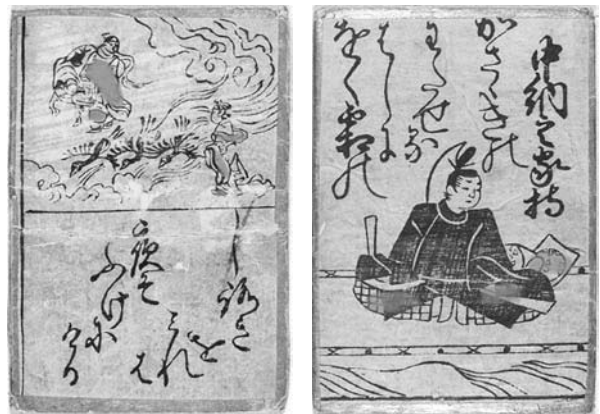 中納言家持
かさゝきの
わたせる
はしに
をく霜の
しろきを
みれは
夜そ
ふけに
ける